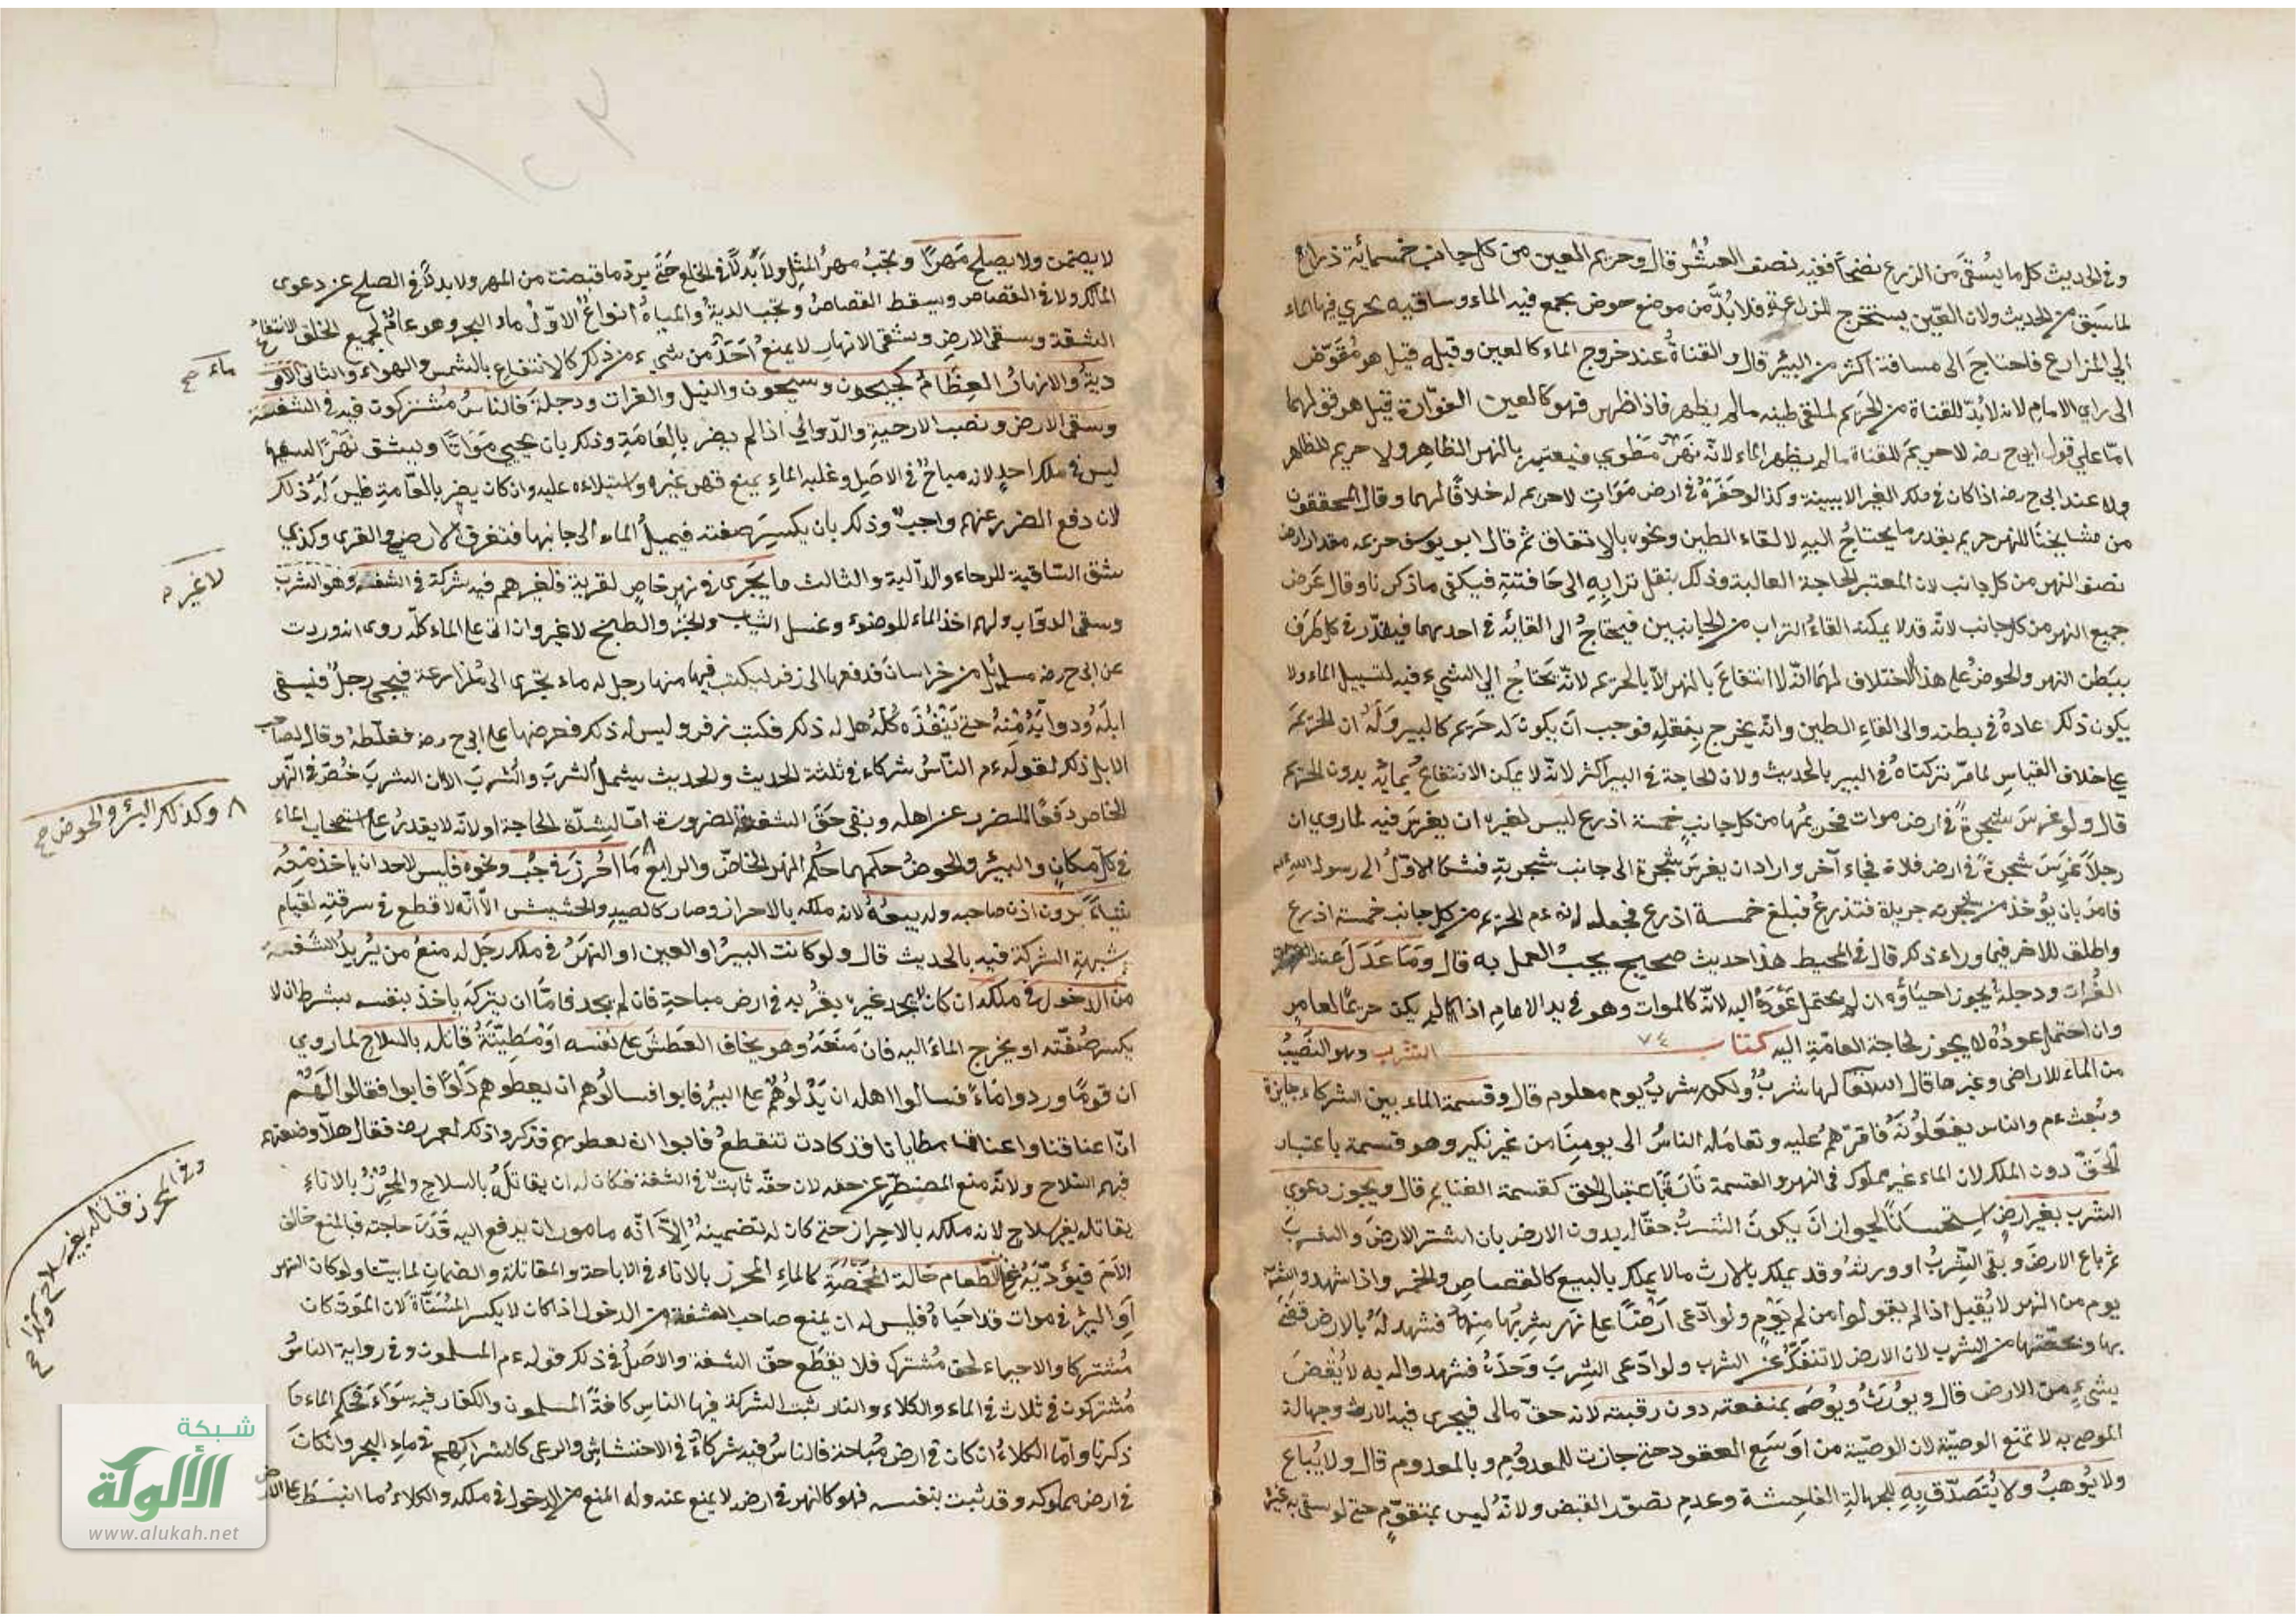 وفي الحديث كل ما يُسْقَى من الزرع نضحًا ففيه نصف العشر قال وحريم العين من كل جانب خمسمائة ذراع
لما سَبَق من الحديث ولان العين يستخرج للزراعة فلا بُدّ من موضع حوض يجمع فيه الماء وساقيه يجري فيها الماء
الي المزارع فاحتاج الى مسافة أكثر من البير قال والقناة عند خروج الماء كالعين وقبله قيل هو مفوّض
الى راي الامام لانه لا بُدّ للقناة من الحريم لملقى طينه ما لم يظهر فاذا ظهر فهو كالعين الفوّارة قيل هو قولهما
امّا علي قول ابي ح رضه لا حريم للقناة ما لم يظهر الماء لانّه نهر مطوي فيعتبر بالنهر الظاهر ولا حريم للظاهر
ولا عند ابي ح رضه اذا كان في ملك الغير الا ببينة وكذا لو حفره في ارض موات لا حريم له خلافًا لهما وقال المحققون
من مشايخنا للنهر حريم بقدر ما يحتاج اليه لالقاء الطين ونحوه بالاتفاق ثم قال ابو يوسف حريمه مقدار ارض
نصف النهر من كل جانب لان المعتبر الحاجة الغالبة وذلك بنقل ترابه الى حافتيه فيكفي ما ذكرنا وقال عرض
جميع النهر من كل جانب لانّه قد لا يمكنه القاء التراب من الجانبين فيحتاج الى القائه في احدهما فيقدّر في كل طرف
ببطن النهر والحوض على هذا الاختلاف لهما انّه لا انتفاع بالنهر الّا بالحريم لانّه يحتاج الي المشيء فيه لتسييل الماء ولا
يكون ذلك عادة في بطنه والى القاء الطين وانّه يخرج بنقله فوجب ان يكون له حريم كالبير وله ان الحريم
على خلاف القياس لما مرّ تركناه في البير بالحديث ولان الحاجة في البير اكثر لانّه لا يمكن الانتفاع بمائه بدون الحريم
قال ولو غرس شجرة في ارض موات فحريمها من كل جانب خمسة اذرع ليس لغيره ان يغرس فيه لما روي ان
رجلًا غرس شجرة في ارض فلاة فجاء آخر واراد ان يغرس شجرة الى جانب شجرته فشكا الاوّل الى رسول الله
فامر بان يؤخذ من شجرته جريدة فتذرع فبلغ خمسة اذرع فجعله له عم الحريم من كل جانب خمسة اذرع
واطلق للاخر فيما وراء ذلك قال في المحيط هذا حديث صحيح يجب العمل به قال وما عدل عند
الفرات ودجلة يجوز احياؤه ان لم يحتمل عَوْدَهُ اليه لانّه كالموات وهو في يد الامام اذا لم يكن حريمًا لعامر
وان احتمل عوده لا يجوز لحاجة العامّة اليه كتاب ٧٤ الشرب وهو النصيب
من الماء للاراضي وغيرها قال الله تعا لها شرب ولكم شرب يوم معلوم قال وقسمة الماء بين الشركاء جايزة
وبُعث عم والناس يفعلونه فاقرّهم عليه وتعامله الناس الى يومنا من غير نكير وهو قسمة باعتبار
الحقّ دون الملك لان الماء غير مملوك في النهر والقسمة تارة باعتبار الحق كقسمة الغنايم قال ويجوز دعوي
الشرب بغير ارض استحسانًا لجواز ان يكون الشرب حقّا له بدون الارض بان اشتر الارض والشرب
ثم باع الارض وبقى الشرب او ورثه وقد يملك بالارث ما لا يملك بالبيع كالقصاص والخمر واذا شهد
يوم من النهر لا يُقبل اذا لم يقولوا من كم يوم ولو ادّعى ارضًا على نهر بشربها منها فشهد له بالارض قضى
بها وبحصّتها من الشرب لان الارض لا تنفكّ عن الشرب ولو ادّعى الشرب وحده فشهدوا له به لا يقضى
بشيءٍ من الارض قال ويورث ويوصى بمنفعته دون رقبته لانه حقّ مالى فيجري فيه الارث وجهالة
الموصى به لا تمنع الوصيّة لان الوصيّة من اوسع العقود حتى جازت للمعدوم وبالمعدوم قال ولا يُباع
ولا يُوهب ولا يُتصدّق به للجهالة الفاحشة وعدم تصوّر القبض ولانّه ليس بمتقوّم حتى لو سقى به غيره
لا يضمن ولا يصلح مهرًا ويجب مهر المثل ولا بدلًا في الخلع حتى يردّ ما قبضت من المهر ولا بدلًا في الصلح عن دعوى
المالك ولا في القصاص ويسقط القصاص وتجب الدية والمياه انواع الاوّل ماء البحر وهو عامّ لجميع الخلق الانتفاع
الشفة وسقى الارض وشقى الانهار لا يمنع احد من شيء من ذلك كالانتفاع بالشمس والهواء والثانى الاو
دية والانهار العظام كجيحون وسيحون والنيل والفرات ودجلة فالناس مشتركون فيه في الشفة
ماء صح
وسقى الارض ونصب الارحية والدوالي اذا لم يضر بالعامة وذلك بان يحيي مواتًا ويشق نهرًا لسقيه
ليس في ملك احد لانه مباح في الاصل وغلبة الماء يمنع قهر غيره واستيلاءه عليه وان كان يضر بالعامة فليس له ذلك
لان دفع الضرر عنهم واجب وذلك بان يكسر ضفته فيميل الماء الى جانبها فتغرق الارضي والقرى وكذي
شق الساقية للرحاء والدالية والثالث ما يجرى في نهر خاص لقرية فلغيرهم فيه شركة في الشفة وهو الشرب
لا غير
وسقى الدواب ولهم اخذ الماء للوضوء وغسل الثياب والخبز والطبخ لا غير وان اتى على الماء كله روى انه وردت
عن ابي ح رضه مسايل من خراسان فدفعها الى زفر ليكتب فيها منها رجل له ماء يجرى الى مزارعة فيجى رجل فيسقى
ابله ودوابه منه حتى ينفذه كله هل له ذلك فكتب زفر وليس له ذلك فعرضها على ابي ح رضه فغلّطه وقال لصاحب
الابل ذلك لقوله عم الناس شركاء في ثلثة الحديث والحديث يشمل الشرب والشرب الا ان الشرب خص في النهر
الخاص دفعًا للضرر عن اهله وبقى حق الشفة للضرورة امّا لشدّة الحاجة او لانّه لا يقدر على استصحاب الماء
في كل مكان والبئر والحوض حكمهما حكم النهر الخاص والرابع ما احرز في جب ونحوه فليس لاحد ان ياخذ منه
٨ وكذلك البئر والحوض صح
شيئًا بدون اذن صاحبه وله بيعه لانه ملكه بالاحراز وصار كالصيد والحشيش الّا انّه لا قطع في سرقته لقيام
شبهة الشركة فيه بالحديث قال ولو كانت البير او العين او النهر في ملك رجل له منع من يريد الشفة
من الدخول في ملكه ان كان يجد غيره بقربه في ارض مباحة فان لم يجد فامّا ان يتركه ياخذ بنفسه بشرط ان لا
يكسر ضفّته او يخرج الماء اليه فان منعه وهو يخاف العطش على نفسه او مطيّته قاتله بالسلاح لما روي
ان قومًا وردوا ماءً فسالوا اهله ان يدلوهم على البئر فابوا فسالوهم ان يعطوهم دلوًا فابوا فقالوا لهم
انّ اعناقنا واعناق مطايانا قد كادت تنقطع فابوا ان يعطوهم فذكروا ذلك لعمر رضه فقال هلّا وضعتم
فيهم السلاح ولانّه منع المضطر عن حقه لان حقّه ثابت في الشفة فكان له ان يقاتل بالسلاح والمحرز بالاناء
وفي المحرز قاتله بغير سلاح
يقاتله بغير سلاح لانه ملكه بالاحراز حتى كان له تضمينه الّا انّه مامور ان يدفع اليه قدر حاجته فبالمنع خالف
الامر فيؤدّبه الطعام حالة المخمصة كالماء المحرز بالاناء في الاباحة والمقاتلة والضمان لما بينا ولو كان النهر
او البئر في موات قد احياه فليس له ان يمنع صاحب الشفة من الدخول اذا كان لا يكسر المسنّاة لان الموت كان
مشتركا والاحياء لحق مشترك فلا يقطع حقّ الشفة والاصل في ذلك قوله عم المسلمون وفي رواية الناس
مشتركون في ثلاث في الماء والكلاء والنار ثبت الشركة فيها الناس كافة المسلمون والكفار فيه سواء فحكم الماء ما
ذكرنا وامّا الكلاء ان كان في ارض مباحة فالناس فيه شركاء في الاحتشاش والرعى كاشتراكهم في ماء البحر وان كان
في ارض مملوكه وقد ثبت بنفسه فهو كالنهر في ارضه لا يمنع عنه وله المنع من الدخول في ملكه والكلاء ما انبسط على الارض
شبكة
الألوكة
www.alukah.net